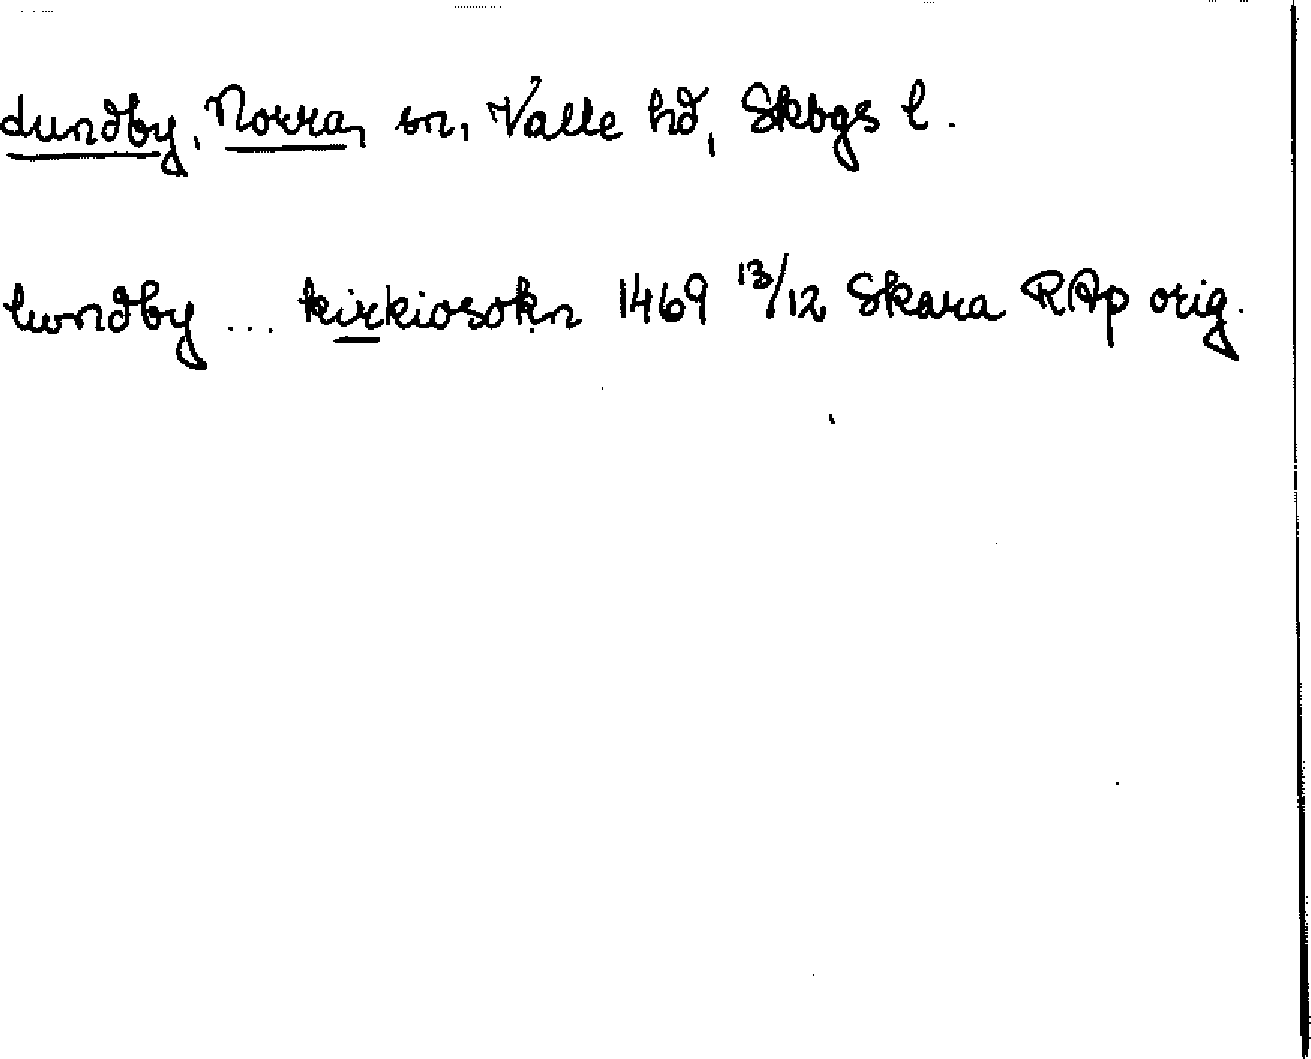 Lundby, Norra, sn, Valle hd, Skbgs l.
lundby ... kirkiosokn 1469 13/12 Skara RAp orig.